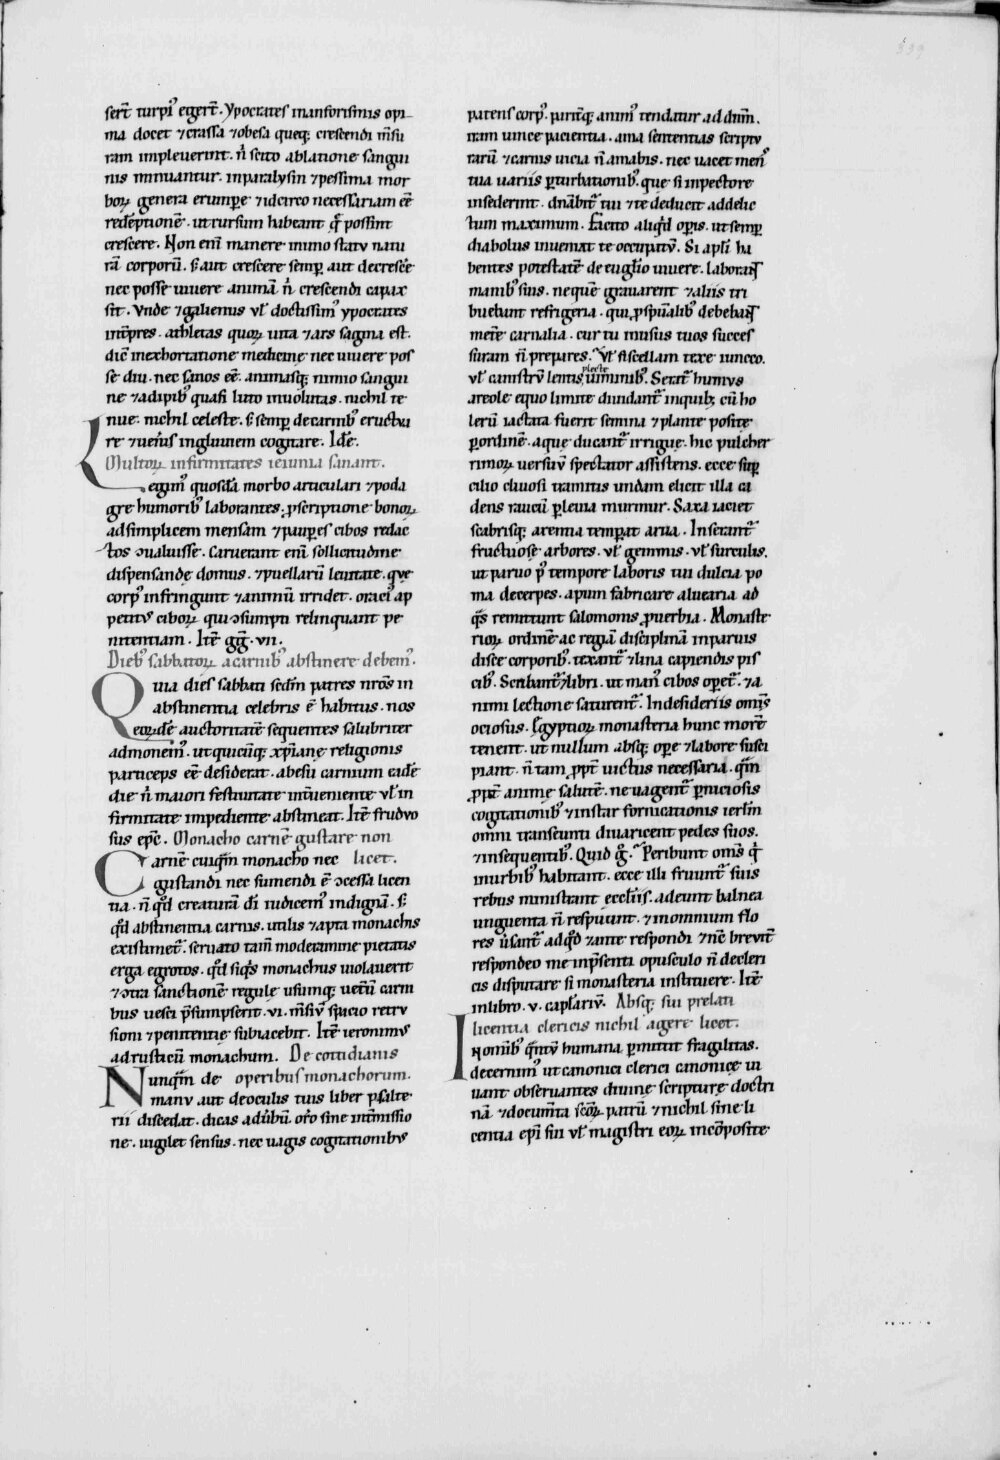 serť turpi⁹ egerť. Ypocrates inansorismis opi-
ma docet ⁊crassa ⁊obesa queq; crescendi m̄su
ram impleuerint. n̄ scito ablatione sangui
nis minuantur. inparalysin ⁊pessima mor
boꝝ genera erumpe ⁊idcirco necessariam eē
redēptionē. ut rursum habeant qͣ possint
crescere. Non enī manere inuno statu natu
rā corporū. s; aut crescere semꝑ aut decrescēe
nec posse uiuere animā n̄ crescendi capax
sit. Vnde ⁊galienus uł doctissim⁹ ypocrates
int̄pres. athletas quoꝝ uita ⁊ars sagina est.
dič inexhortatione medicine nec uiuere pos
se diu. nec sanos eē. animasq; nimio sangui
ne ⁊adipib⁹ quasi luto inuolutas. nichil te
nue. nichil celeste. s; semꝑ decarnib⁹ eructu
re ⁊uen̄s ingluuiem cogitare. Idē.
Multoꝝ infirmitates ieiunia sanant.
Legim⁹ quosdā morbo articulari ⁊poda
gre humorib⁹ laborantes. ꝓscriptione bonoꝝ
adsimplicem mensam ⁊pauꝑes cibos redac
tos ↄualuisse. Caruerant enī sollicitudine
dispensandę domus. ⁊puellarū leuitate. que
corp⁹ infringunt ⁊animū irridet. oraci⁹ ap
petitus ciboꝝ qui ↄsumpti relinquant pe
nitentiam. Itē gg̃. vii.
Dieb⁹ sabbatoꝝ acarnib⁹ abstinere debem⁹.
Quia dies sabbati sedm patres nr̄os in
abstinentia celebris ē habitus. nos
eoꝝdē auctoritatē sequentes salubriter
admonem⁹. ut quicūq; xp̄ianę religionis
particeps eē desiderat. abesu carnium eadē
die n̄ maiori festiuitate int̄ueniente uł in
firmitate impediente abstineat. Itē fructuo
sus ep̄c. Monacho carnē gustare non
Carnē cuiqm̄ monacho nec licet.
gustandi nec sumendi ē ↄcessa licen
tia. n̄ qd̄ creaturā dī iudicem⁹ indignā. s;
qd̄ abstinentia carnis. utilis ⁊apta monachis
existimet᷑. seruato tam̄ moderamine pietatis
erga egrotos. qd̄ siq̄s monachus uiolauerit
⁊ↄtra sanctionē regulę usumq; uetitū carni
bus uesci p̄sumpserit. vi. m̄siū spacio retru
sioni ⁊penitentię subiacebit. Itē ieronimus
adrusticū monachum. De cotidianis
Nunqm̄ de operibus monachorum.
manu aut deoculis tuis liber psalte
rii discedat. dicas aduerbū. or̄o sine int̄missio
ne. uigilet sensus. nec uagis cogitationibus
patens corp⁹. pariť̄q; anim⁹ tendatur addnm̄.
iram uince pacientia. ama sententias scriptu
rarū ⁊carnis uicia n̄ amabis. nec uacet mens
tua uariis ꝑturbationib⁹. que si inpectore
insederint. dn̄abūt᷑ tui ⁊te deducit addelic
tum maximum. Facito aliqd̄ oꝑis. ut semꝑ
diabolus inueniat te occupatū. Si apl̄i ha
bentes potestatē de euglio uiuere. laborant
manib⁹ suis. ne quē grauarent ⁊aliis tri
buebant refrigeria. qui ꝓspūalib⁹ debebant
metē carnalia. cur tu inusus tuos succes
suram n̄ prepares. Vł fiscellam texe iunceo.
uł canistrū lentis plecte uiminib⁹. Serat᷑ humus
areole equo limite diuidant᷑ inquib; cū ho
lerū iactata fuerit semina ⁊plante posite
ꝑordinē. aque ducant᷑ irrigue. hic pulcher
rimoꝝ uersuū spectator assistens. ecce suꝑ
cilio cliuosi tramitis undam elicit illa ca
dens raucū ꝑleuia murmur. Saxa iaciet
scabrisq; arentia temꝑat arua. Inserant᷑
fructuosę arbores. uł gemmis. uł surculis.
ut paruo p⁹ tempore laboris tui dulcia po
ma decerpes. apum fabricare aluearia ad
qͣs remittunt salomonis ꝓuerbia. Monaste
rioꝝ ordinē ac regiā disciplinā inparuis
disce corporib⁹. texant᷑ ⁊lina capiendis pis
cib⁹. Scribant᷑ ⁊libri. ut man⁹ cibos oꝑet᷑. ⁊a
nimi lectione saturent᷑. Indesideriis om̄is
ociosus. Egyptioꝝ monasteria hunc morē
tenent. ut nullum absq; oꝑe ⁊labore susci
piant. n̄ tam ꝓpt̄ uictus necessaria. qm̄
ꝓpt̄ anime salutē. ne uagent᷑ ꝑniciosis
cogitationib⁹ ⁊instar fornicationis ierl̄m
omni transeunti diuaricent pedes suos.
⁊insequentib⁹. Quid g°. Peribunt om̄s qͥ
inurbib⁹ habitant. ecce illi fruunt᷑ suis
rebus ministrant ecclīis. adeunt balnea
unguenta n̄ respuunt. ⁊inomnium flo
res uersant᷑ adqd̄ ⁊ante respondi ⁊nc̄ breuit̄
respondeo me inp̄senti opusculo n̄ decleri
cis disputare si monasteria instituere. Itē
inlibro. v. caplariū. Absq; sui prelati
licentia clericis nichil agere licet.
Inomīb⁹ qͣntū humana ꝑmittit fragilitas.
decernim⁹ ut canonici clerici canonice ui
uant obseruantes diuine scripture doctri
nā ⁊documta scoꝝ patrū ⁊nichil sine li
centia ep̄i sui uł magistri eoꝝ incōposite